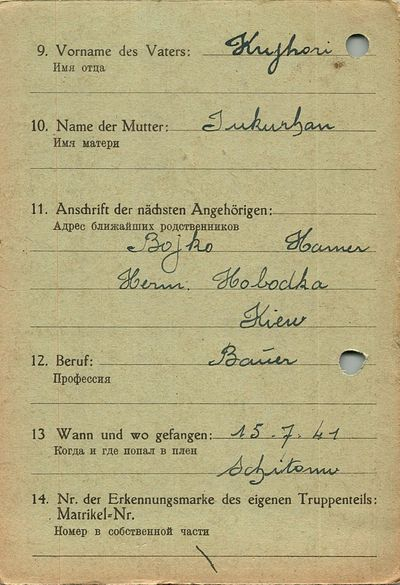 9. Vorname des Vaters: Kughori
Имя отца
10. Name der Mutter: Jukurhan
Имя матери
11. Anschrift der nächsten Angehörigen:
Адрес ближайших родственников
Bojko Hamer
Herm. Hobodka
Kiew
12. Beruf: Bauer
Профессия
13 Wann und wo gefangen: 15.7.41
Когда и где попал в плен
Schitomir
14. Nr. der Erkennungsmarke des eigenen Truppenteils:
Matrikel-Nr.
Номер в собственной части